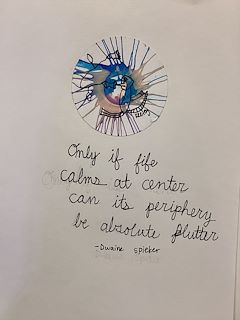 Only if fife
calms at center
can its periphery
be absolute flutter
-Dwaine Spieker